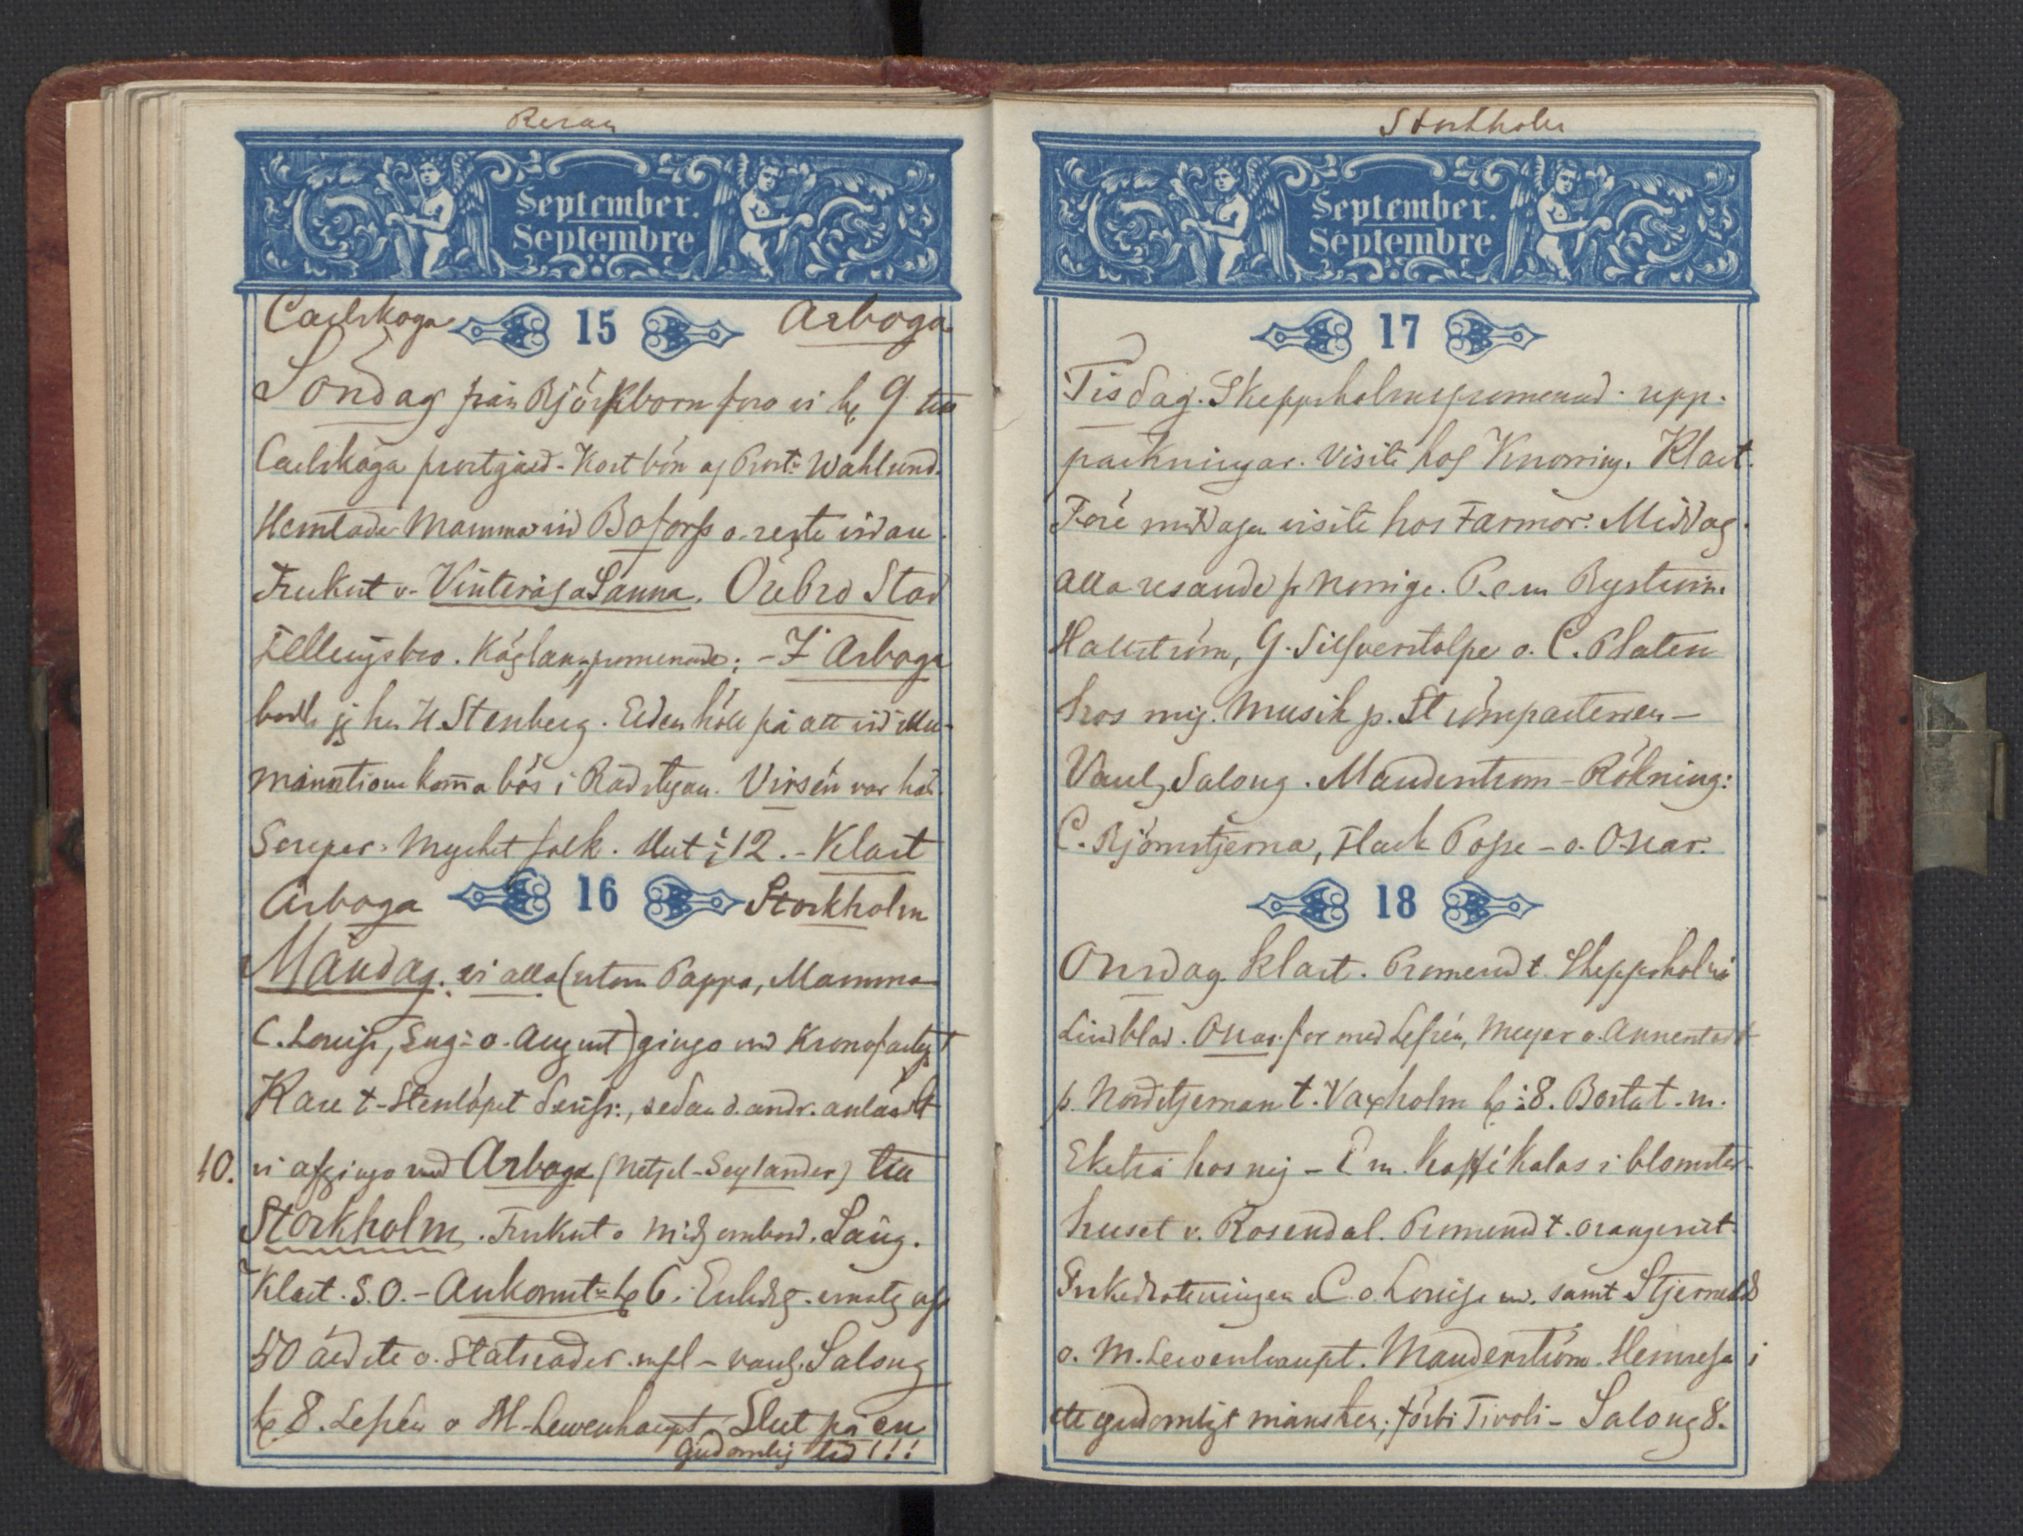 Resan
September.
Septembre
Carlskoga 15 Arboga
Söndag från Björkborn foro vi kl. 9 till
Carlskoga prostgård - Kort bön af Prost: Wahlund.
Hemtade Mamma vid Bofors o. reste vidare.
Frukost v. Vinteråsa Sanna. Örebro Stad
Fellingsbro. Käglan promenade: - I Arboga
bodde jg hos H. Stenberg. Elden höll på att vid illu-
minationen komma lös i Rådstugan. Virsén var här.
Souper. Mycket folk. Slut ½ 12. - Klart
Arboga 16 Stockholm
Måndag. vi alla (utom Pappa, Mamma
C. Louise, Eug: o. August) gingo med
Kare t. Stenlöpet sedan d. andr.
10. vi afgingo med Arboga (Netzel-Seylander) till
Stockholm. Frukost o midg ombord. Sång.
Klart. S.O. - Ankomst kl 6. af
50 ärade o. Statsråder. mfl - vanl. Salong
kl 8. Lefrén o M. Lewenhaupt Slut på en
gudomlig tid!!!
Stockholm
September.
Septembre
17
Tisdag. Skeppsholmspromenad. upp-
packningar. Visite hos Knorring. Klart.
Före middagen visite hos Farmor. Middag.
alla resande fr Norrige. P. e m Byström.
Hallström, G. Silfverstolpe o. C. Platen
hos mig. Musik p. Strömparterren -
Vanl, Salong. Manderström - Rökning:
C. Björnstjerna, Flack Posse - o. Oscar.
18
Onsdag. klart. Promenad t. Skeppsholm
Lindblad. Oscar for med Lefrén, Meyer o. Annerstedt
p. Nordstjernan t. Vaxholm kl ½ 8. Borta t. m.
Eketrä hos mig - E m. Kaffékalas i blomster-
huset v. Rosendal. Promenad t. orangeriet
Enkedrottningen C. o. Louise m. samt Stjerneld
o. M. Lewenhaupt. Manderström. Hemresa i
ett gudomligt månsken; förbi Tivoli - Salong 8.